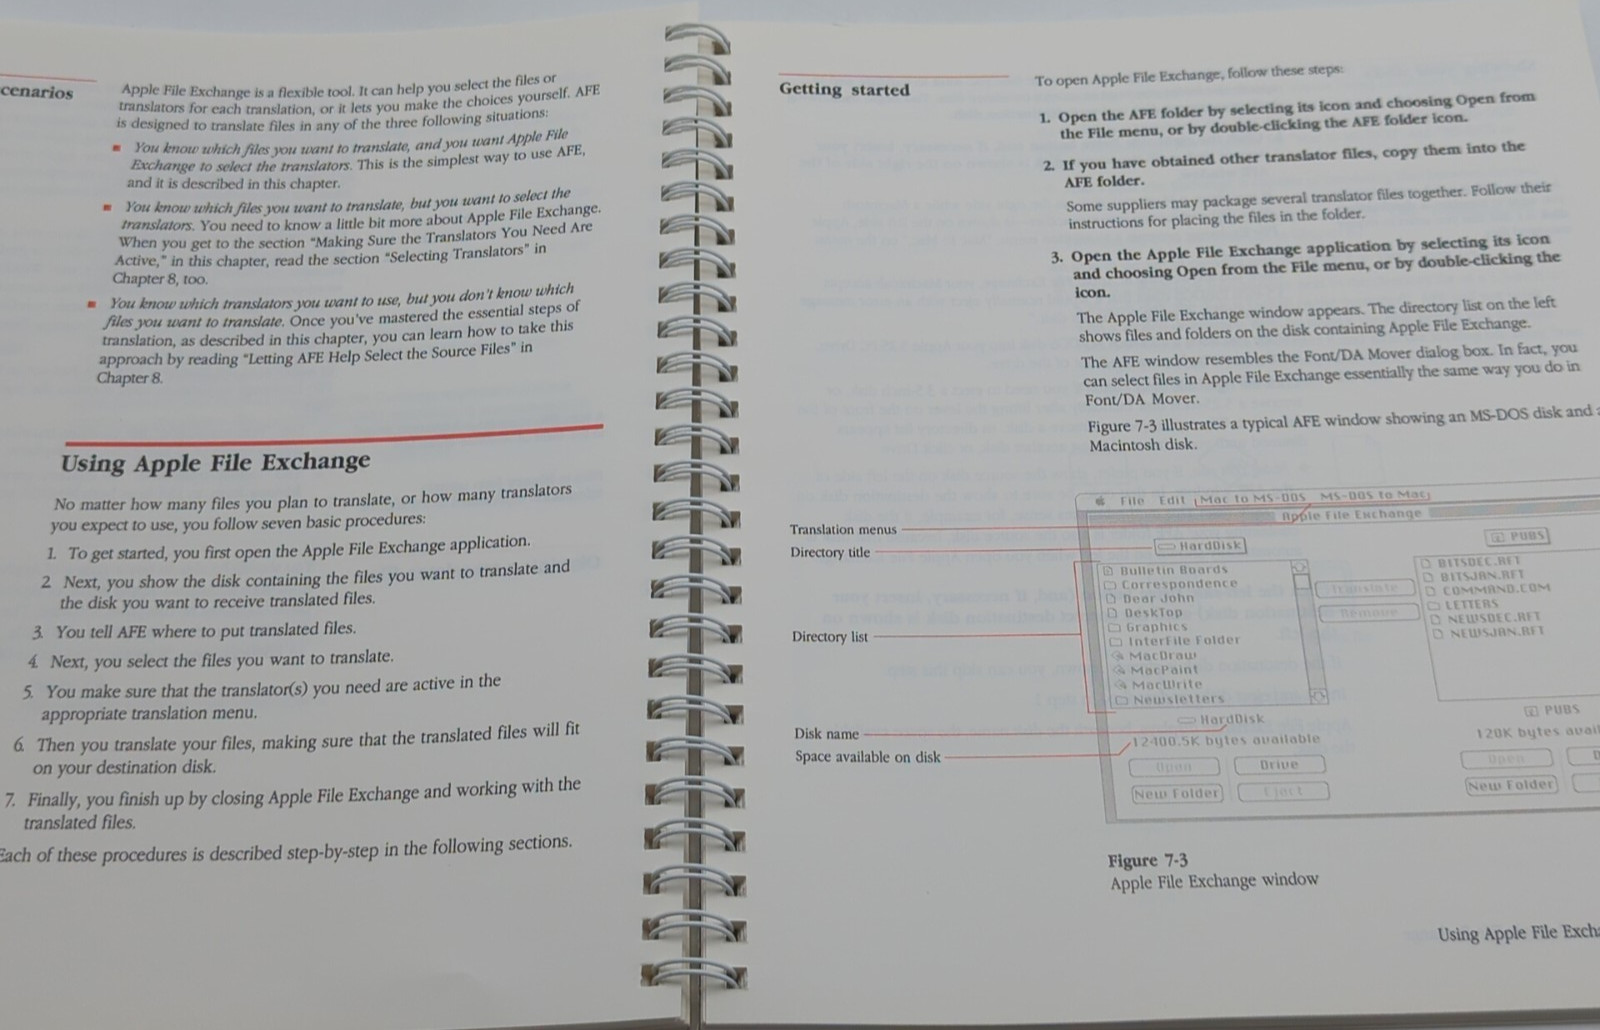 cenarios
Apple File Exchange is a flexible tool. It can help you select the files or
translators for each translation, or it lets you make the choices yourself. AFE
is designed to translate files in any of the three following situations:
■ You know which files you want to translate, and you want Apple File
Exchange to select the translators. This is the simplest way to use AFE,
and it is described in this chapter.
■ You know which files you want to translate, but you want to select the
translators. You need to know a little bit more about Apple File Exchange.
When you get to the section “Making Sure the Translators You Need Are
Active,” in this chapter, read the section “Selecting Translators” in
Chapter 8, too.
■ You know which translators you want to use, but you don’t know which
files you want to translate. Once you’ve mastered the essential steps of
translation, as described in this chapter, you can learn how to take this
approach by reading “Letting AFE Help Select the Source Files” in
Chapter 8.
Using Apple File Exchange
No matter how many files you plan to translate, or how many translators
you expect to use, you follow seven basic procedures:
1. To get started, you first open the Apple File Exchange application.
2. Next, you show the disk containing the files you want to translate and
the disk you want to receive translated files.
3. You tell AFE where to put translated files.
4. Next, you select the files you want to translate.
5. You make sure that the translator(s) you need are active in the
appropriate translation menu.
6. Then you translate your files, making sure that the translated files will fit
on your destination disk.
7. Finally, you finish up by closing Apple File Exchange and working with the
translated files.
Each of these procedures is described step-by-step in the following sections.
Getting started
To open Apple File Exchange, follow these steps:
1. Open the AFE folder by selecting its icon and choosing Open from
the File menu, or by double-clicking the AFE folder icon.
2. If you have obtained other translator files, copy them into the
AFE folder.
Some suppliers may package several translator files together. Follow their
instructions for placing the files in the folder.
3. Open the Apple File Exchange application by selecting its icon
and choosing Open from the File menu, or by double-clicking the
icon.
The Apple File Exchange window appears. The directory list on the left
shows files and folders on the disk containing Apple File Exchange.
The AFE window resembles the Font/DA Mover dialog box. In fact, you
can select files in Apple File Exchange essentially the same way you do in
Font/DA Mover.
Figure 7-3 illustrates a typical AFE window showing an MS-DOS disk and a
Macintosh disk.
Translation menus
Directory title
Directory list
Disk name
Space available on disk
File Edit Mac to MS-DOS MS-DOS to Mac
Apple File Exchange
HardDisk
Bulletin Boards
Correspondence
Dear John
DeskTop
Graphics
InterFile Folder
MacDraw
MacPaint
MacWrite
Newsletters
HardDisk
12400.5K bytes available
Open
Drive
New Folder
Eject
Translate
Remove
PUBS
BITSDEC.RFT
BITSJAN.RFT
COMMAND.COM
LETTERS
NEWSDEC.RFT
NEWSJAN.RFT
PUBS
120K bytes avai
Open
D
New Folder
Figure 7-3
Apple File Exchange window
Using Apple File Exch